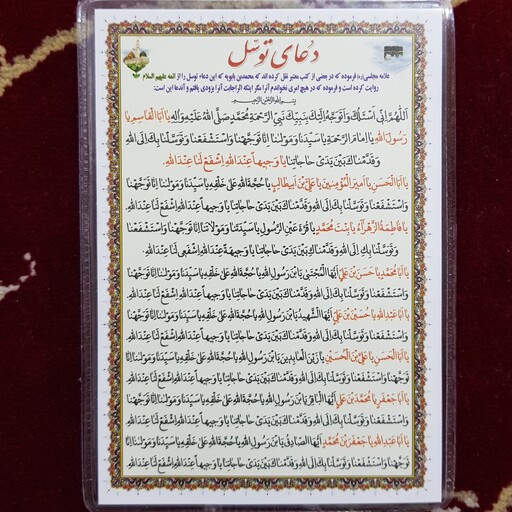 دعای توسل
علامه مجلسی(ره) فرموده که در بعضی از کتب معتبر نقل کرده اند که محمدبن بابویه که این دعاء توسل را از ائمه علیهم السلام
روایت کرده است و فرموده که در هیچ امری نخواندم آنرا مگر اینکه اثر اجابت آنرا بزودی یافتم و آندعا این است:
بسم الله الرحمن الرحیم
اَللّهُمَّ اِنّی اَسْئَلُكَ وَاَتَوَجَّهُ اِلَیْكَ بِنَبِیِّكَ نَبِیِّ الرَّحْمَةِ مُحَمَّدٍ صَلَّی اللهُ عَلَیْهِ وَآلِهِ یا اَبَا الْقاسِمِ یا
رَسُولَ اللهِ یا اِمامَ الرَّحْمَةِ یا سَیِّدَنا وَمَوْلینا اِنّا تَوَجَّهْنا وَاسْتَشْفَعْنا وَتَوَسَّلْنا بِكَ اِلَی اللهِ
وَقَدَّمْناكَ بَیْنَ یَدَیْ حاجاتِنا یا وَجیهاً عِنْدَ اللهِ اِشْفَعْ لَنا عِنْدَ اللهِ.
یا اَبَا الْحَسَنِ یا اَمیرَ الْمُؤْمِنینَ یا عَلِیَّ بْنَ اَبیطالِبٍ یا حُجَّةَ اللهِ عَلی خَلْقِهِ یا سَیِّدَنا وَمَوْلینا اِنّا تَوَجَّهْنا
وَاسْتَشْفَعْنا وَتَوَسَّلْنا بِكَ اِلَی اللهِ وَقَدَّمْناكَ بَیْنَ یَدَیْ حاجاتِنا یا وَجیهاً عِنْدَ اللهِ اِشْفَعْ لَنا عِنْدَ اللهِ
یا فاطِمَةَ الزَّهْرآءُ یا بِنْتَ مُحَمَّدٍ یا قُرَّةَ عَیْنِ الرَّسُولِ یا سَیِّدَتَنا وَمَوْلاتَنا اِنّا تَوَجَّهْنا وَاسْتَشْفَعْنا
وَتَوَسَّلْنا بِكِ اِلَی اللهِ وَقَدَّمْناكِ بَیْنَ یَدَیْ حاجاتِنا یا وَجیهَةً عِنْدَ اللهِ اِشْفَعی لَنا عِنْدَ اللهِ
یا اَبا مُحَمَّدٍ یا حَسَنَ بْنَ عَلِیٍّ اَیُّهَا الْمُجْتَبی یَا بْنَ رَسُولِ اللهِ یا حُجَّةَ اللهِ عَلی خَلْقِهِ یا سَیِّدَنا وَمَوْلینا اِنّا تَوَجَّهْنا
وَاسْتَشْفَعْنا وَتَوَسَّلْنا بِكَ اِلَی اللهِ وَقَدَّمْناكَ بَیْنَ یَدَیْ حاجاتِنا یا وَجیهاً عِنْدَ اللهِ اِشْفَعْ لَنا عِنْدَ اللهِ
یا اَبا عَبْدِ اللهِ یا حُسَیْنَ بْنَ عَلِیٍّ اَیُّهَا الشَّهیدُ یَا بْنَ رَسُولِ اللهِ یا حُجَّةَ اللهِ عَلی خَلْقِهِ یا سَیِّدَنا وَمَوْلینا اِنّا تَوَجَّهْنا
وَاسْتَشْفَعْنا وَتَوَسَّلْنا بِكَ اِلَی اللهِ وَقَدَّمْناكَ بَیْنَ یَدَیْ حاجاتِنا یا وَجیهاً عِنْدَ اللهِ اِشْفَعْ لَنا عِنْدَ اللهِ
یا اَبَا الْحَسَنِ یا عَلِیَّ بْنَ الْحُسَیْنِ یا زَیْنَ الْعابِدینَ یَا بْنَ رَسُولِ اللهِ یا حُجَّةَ اللهِ عَلی خَلْقِهِ یا سَیِّدَنا وَمَوْلینا اِنّا
تَوَجَّهْنا وَاسْتَشْفَعْنا وَتَوَسَّلْنا بِكَ اِلَی اللهِ وَقَدَّمْناكَ بَیْنَ یَدَیْ حاجاتِنا یا وَجیهاً عِنْدَ اللهِ اِشْفَعْ لَنا عِنْدَ اللهِ
یا اَبا جَعْفَرٍ یا مُحَمَّدَ بْنَ عَلِیٍّ اَیُّهَا الْباقِرُ یَا بْنَ رَسُولِ اللهِ یا حُجَّةَ اللهِ عَلی خَلْقِهِ یا سَیِّدَنا وَمَوْلینا اِنّا تَوَجَّهْنا
وَاسْتَشْفَعْنا وَتَوَسَّلْنا بِكَ اِلَی اللهِ وَقَدَّمْناكَ بَیْنَ یَدَیْ حاجاتِنا یا وَجیهاً عِنْدَ اللهِ اِشْفَعْ لَنا عِنْدَ اللهِ
یا اَبا عَبْدِ اللهِ یا جَعْفَرَ بْنَ مُحَمَّدٍ اَیُّهَا الصّادِقُ یَا بْنَ رَسُولِ اللهِ یا حُجَّةَ اللهِ عَلی خَلْقِهِ یا سَیِّدَنا وَمَوْلینا اِنّا
تَوَجَّهْنا وَاسْتَشْفَعْنا وَتَوَسَّلْنا بِكَ اِلَی اللهِ وَقَدَّمْناكَ بَیْنَ یَدَیْ حاجاتِنا یا وَجیهاً عِنْدَ اللهِ اِشْفَعْ لَنا عِنْدَ اللهِ